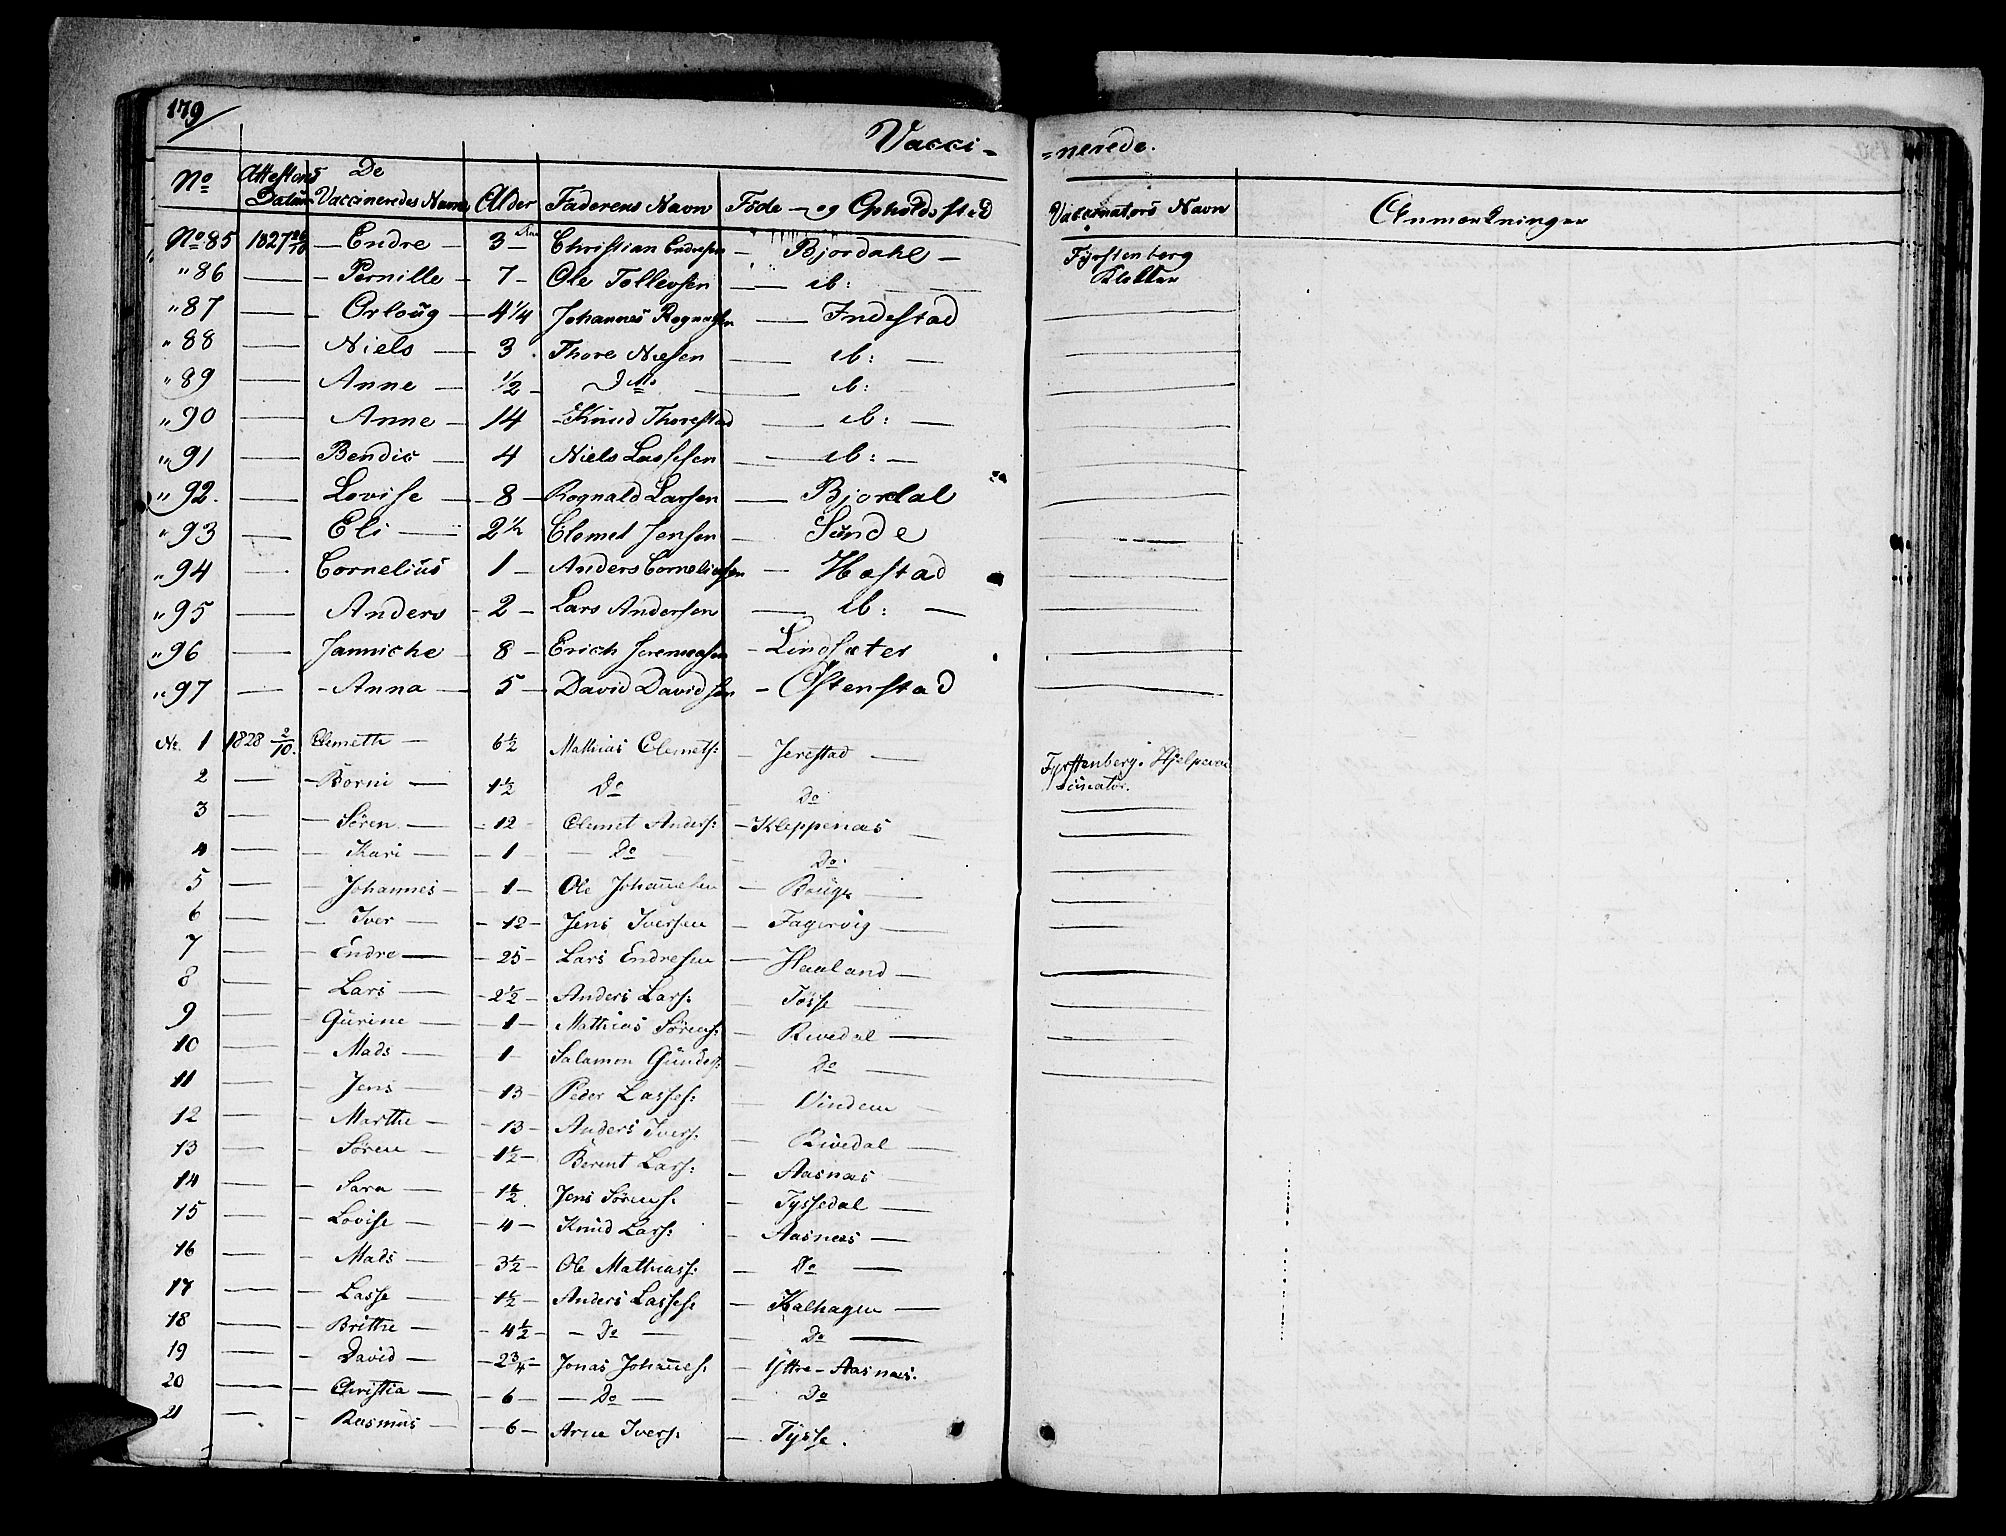 179
Vacci-
-nerede.
No Attestens Datum De Vaccineredes Navne Alder Faderens Navn Föde- og Opholdssted Vaccinators Navn Anmærkninger
No 85 1827 — Endre — 3 — Christian Endresen — Bjordahl — Fÿrstenberg
Klokker
" 86 — Pernille — 7 — Ole Tollevsen — ib: —
" 87 — Orloŭg — 4 1/4 Johannes — Indestad —
" 88 — Niels — 3 Thore — ib: —
" 89 — Anne — 1/2 Do — ib: —
" 90 — Anne — 14 Knŭd Thorestad — ib: —
" 91 — Bendic — 4 Niels Lassesen — ib: —
" 92. — Lovise — 8 — Rognald Larsen — Bjordal —
" 93 — Eli — 2 1/2 Clemet Jensen — Sŭnde —
" 94 — Cornelius 1 — Anders Corneliussen — Hæstad —
" 95 — Anders — 2 — Lars Andersen — ib: —
" 96 — Jannicke — 8 — Erich — Lindsæter —
" 97 — Anna — 5 — David Davidsen — Ostenstad —
No. 1 1828 2/10. Clemeth — 6 1/2 Mathias Clemets: — Jerestad — Fyrstenberg. Hjelpevac
cinator.
2 — Borni 1 1/2 Do Do —
3 — Sören — 12 Clemet Anders: — Kleppenas —
4 — Kari — 1 — Do — Do. —
5 — Johannes — 1 — Ole Johannesen — —
6 — Iver — 12 — Jens Iversen — Fagervig —
7 — Endre — 25 — Lars Endresen — Haaland —
8 — Lars — 2 1/2 — Anders Lars: Tösse —
9 — Gŭrine — 1 — Mathias Sörens: Rivedal —
10 — Mads — 1 — Salamon Do —
11 — Jens — 13 — Peder Lasses: —
12 — Marthe — 13 — Anders Ivers: — Rivedal —
13 — Sören — 1 1/2 — Berent Lars: — Aasnas —
14 — Sara — 1 1/2 Jens Sörens: — Tyssedal —
15 — Lovise — 4 — Knŭd Lars: — Aasnæs —
16 — Mads — 3 1/2 — Ole Mathiass: — Do —
17 — Lasse — 1 1/2 — Anders Lasses: — Kalhagen —
18 — Brithe — 4 1/2 — Do — Do —
19 — David — 2 3/4 — Jonas Johannes: — Yttre-Aasnæs.
20 — Christia — 6 — Do — Do
21 — Rasmŭs — 6 — Arne Ivers: — Tysse.